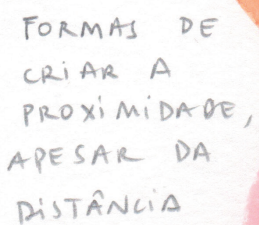 FORMAS DE
CRiAR A
PROXiMiDADE,
APESAR DA
DiSTÂNCiA